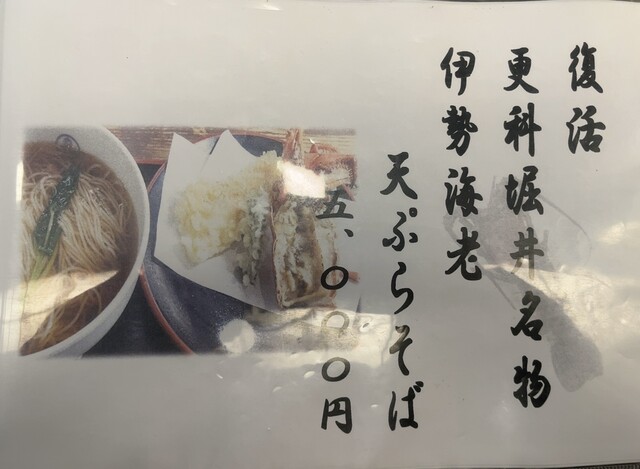 復活
更科堀井名物
伊勢海老
天ぷらそば
五、〇〇〇円